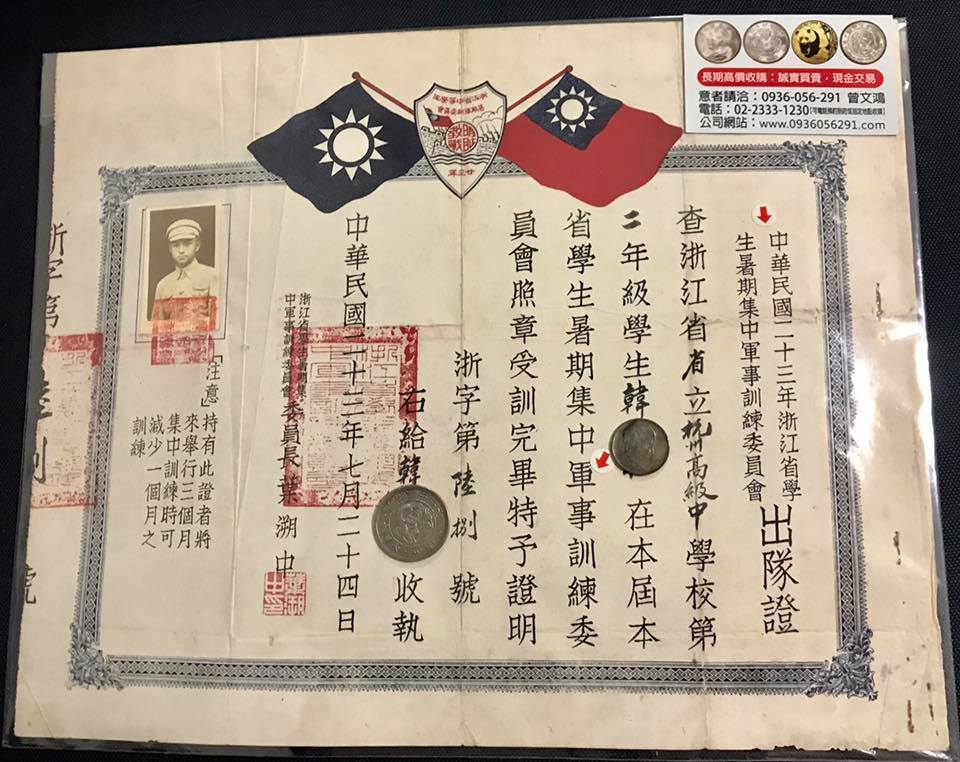 長期高價收購：誠實買賣，現金交易
意者請洽：0936-056-291 曾文鴻
電話：02-2333-1230
公司網站：www.0936056291.com
明恥
教戰
廿三年
中華民國二十三年浙江省學
生暑期集中軍事訓練委員會
出隊證
查浙江省省立杭州高級中學校第
二年級學生韓 在本屆本
省學生暑期集中軍事訓練委
員會照章受訓完畢特予證明
浙字第陸捌號
右給韓 收執
中華民國二十三年七月二十四日
浙江省學生暑期集
中軍事訓練委員會委員長葉溯中
葉溯
中印
「注意」
持有此證者將
來舉行三個月
集中訓練時可
減少一個月之
訓練
浙字第陸捌號